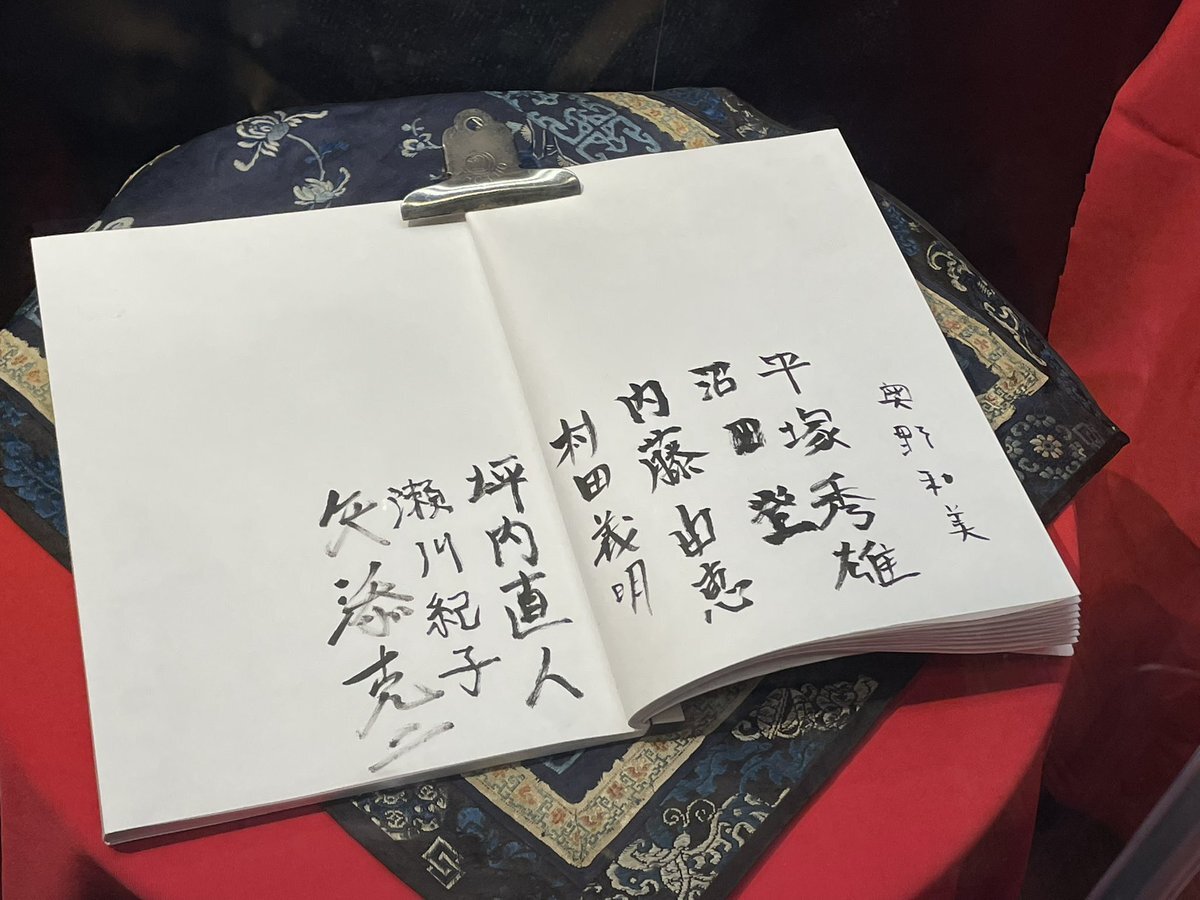 奥野和美
平塚秀雄
沼田登
内藤由恵
村田義明
坪内直人
瀬川紀子
矢添克二